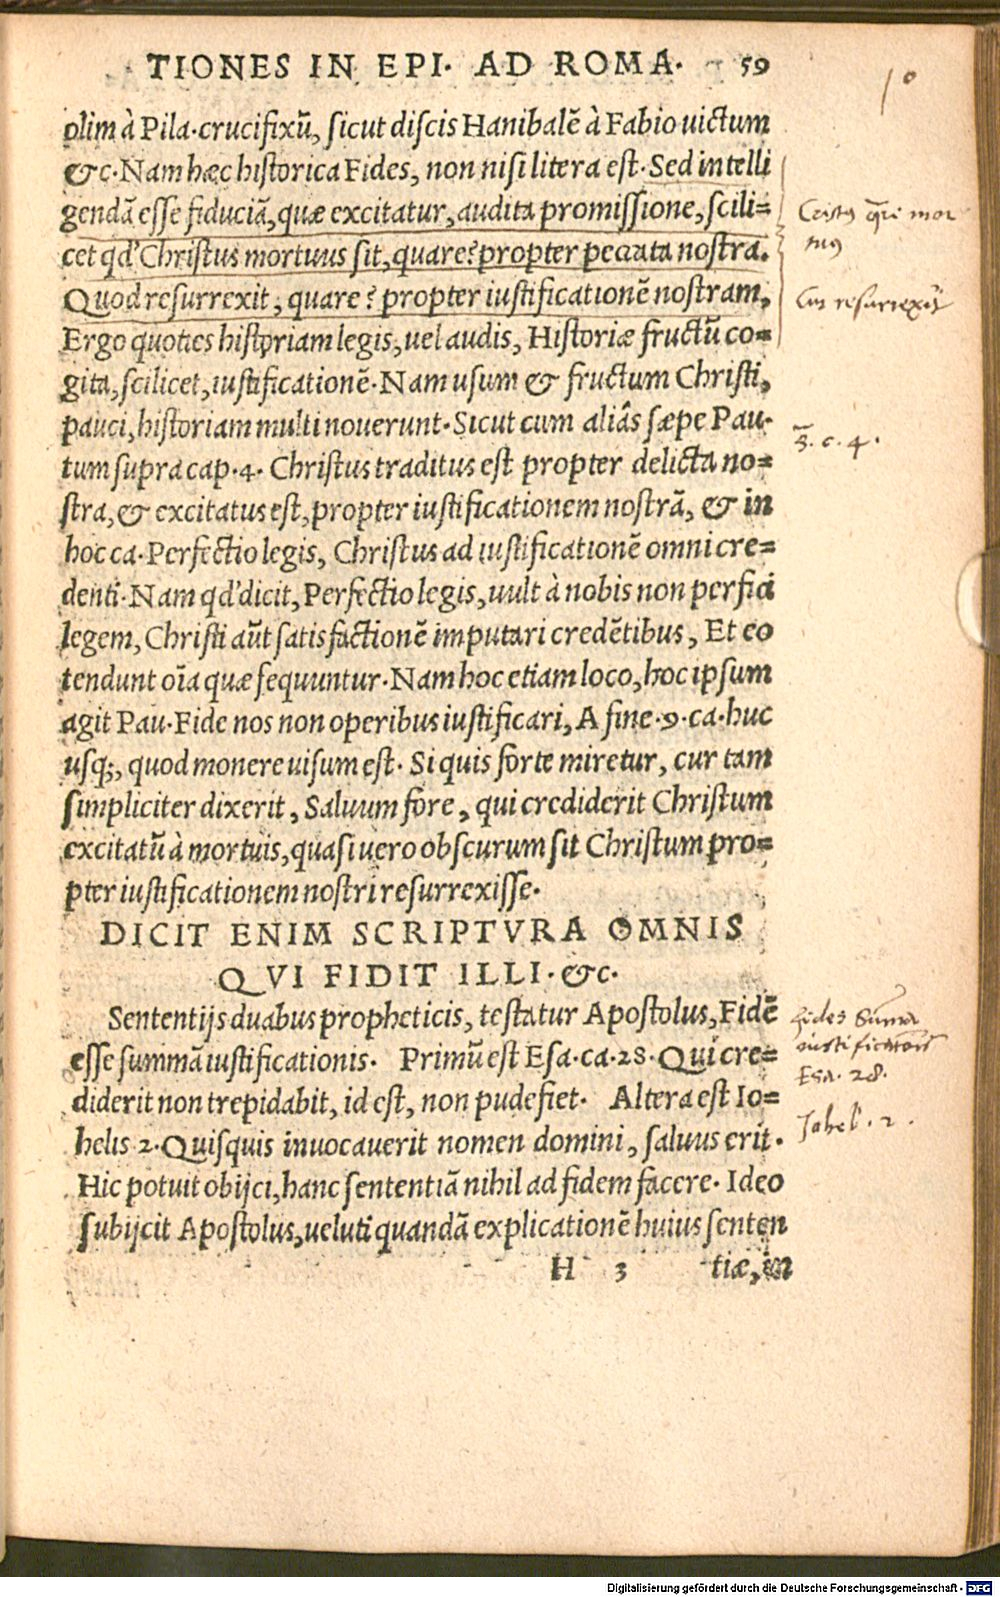 TIONES IN EPI. AD ROMA. 59
10
olim à Pila.crucifixũ, sicut discis Hanibalẽ à Fabio uictum
&c. Nam hæc historica Fides, non nisi litera est. Sed intelli
gendã esse fiduciã, quæ excitatur, audita promissione, scili=
cet qd' Christus mortuus sit, quare? propter peccata nostra.
Quod resurrexit, quare? propter iustificationẽ nostram,
Ergo quoties historiam legis, uel audis, Historiæ fructũ co=
gita, scilicet, iustificationẽ. Nam usum & fructum Christi,
pauci, historiam multi nouerunt. Sicut cum aliâs sæpe Pau.
tum supra cap.4. Christus traditus est propter delicta no=
stra, & excitatus est, propter iustificationem nostrã, & in
hoc ca. Perfectio legis, Christus ad iustificationẽ omni cre=
denti. Nam qd' dicit, Perfectio legis, uult à nobis non perfici
legem, Christi aũt satisfactionẽ imputari credẽtibus, Et eo
tendunt oĩa quæ sequuntur. Nam hoc etiam loco, hoc ipsum
agit Pau. Fide nos non operibus iustificari, A fine .9. ca. huc
usq;, quod monere uisum est. Si quis forte miretur, cur tam
simpliciter dixerit, Saluum fore, qui crediderit Christum
excitatũ à mortuis, quasi uero obscurum sit Christum pro=
pter iustificationem nostri resurrexisse.
DICIT ENIM SCRIPTVRA OMNIS
QVI FIDIT ILLI. &c.
Sententijs duabus propheticis, testatur Apostolus, Fidẽ
esse summã iustificationis. Primũ est Esa. ca. 28. Qui cre=
diderit non trepidabit, id est, non pudefiet. Altera est Io=
helis 2. Quisquis inuocauerit nomen domini, saluus erit.
Hic potuit obijci, hanc sententiã nihil ad fidem facere. Ideo
subijcit Apostolus, ueluti quandã explicationẽ huius senten
H 3 tiæ, in
mor
tuus
Cur resurrexit
c. 4.
fides Suma
iustificationis
Esa. 28.
Johel. 2.
Digitalisierung gefördert durch die Deutsche Forschungsgemeinschaft - DFG